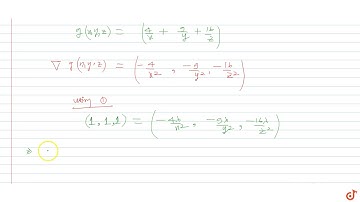 g(x,y,z) = (4/x + 9/y + 16/z)
∇ g(x,y,z) = (-4/x², -9/y², -16/z²)
using ①
(1,1,1) = (-4λ/x², -9λ/y², -16λ/z²)
⇒
doubtnut